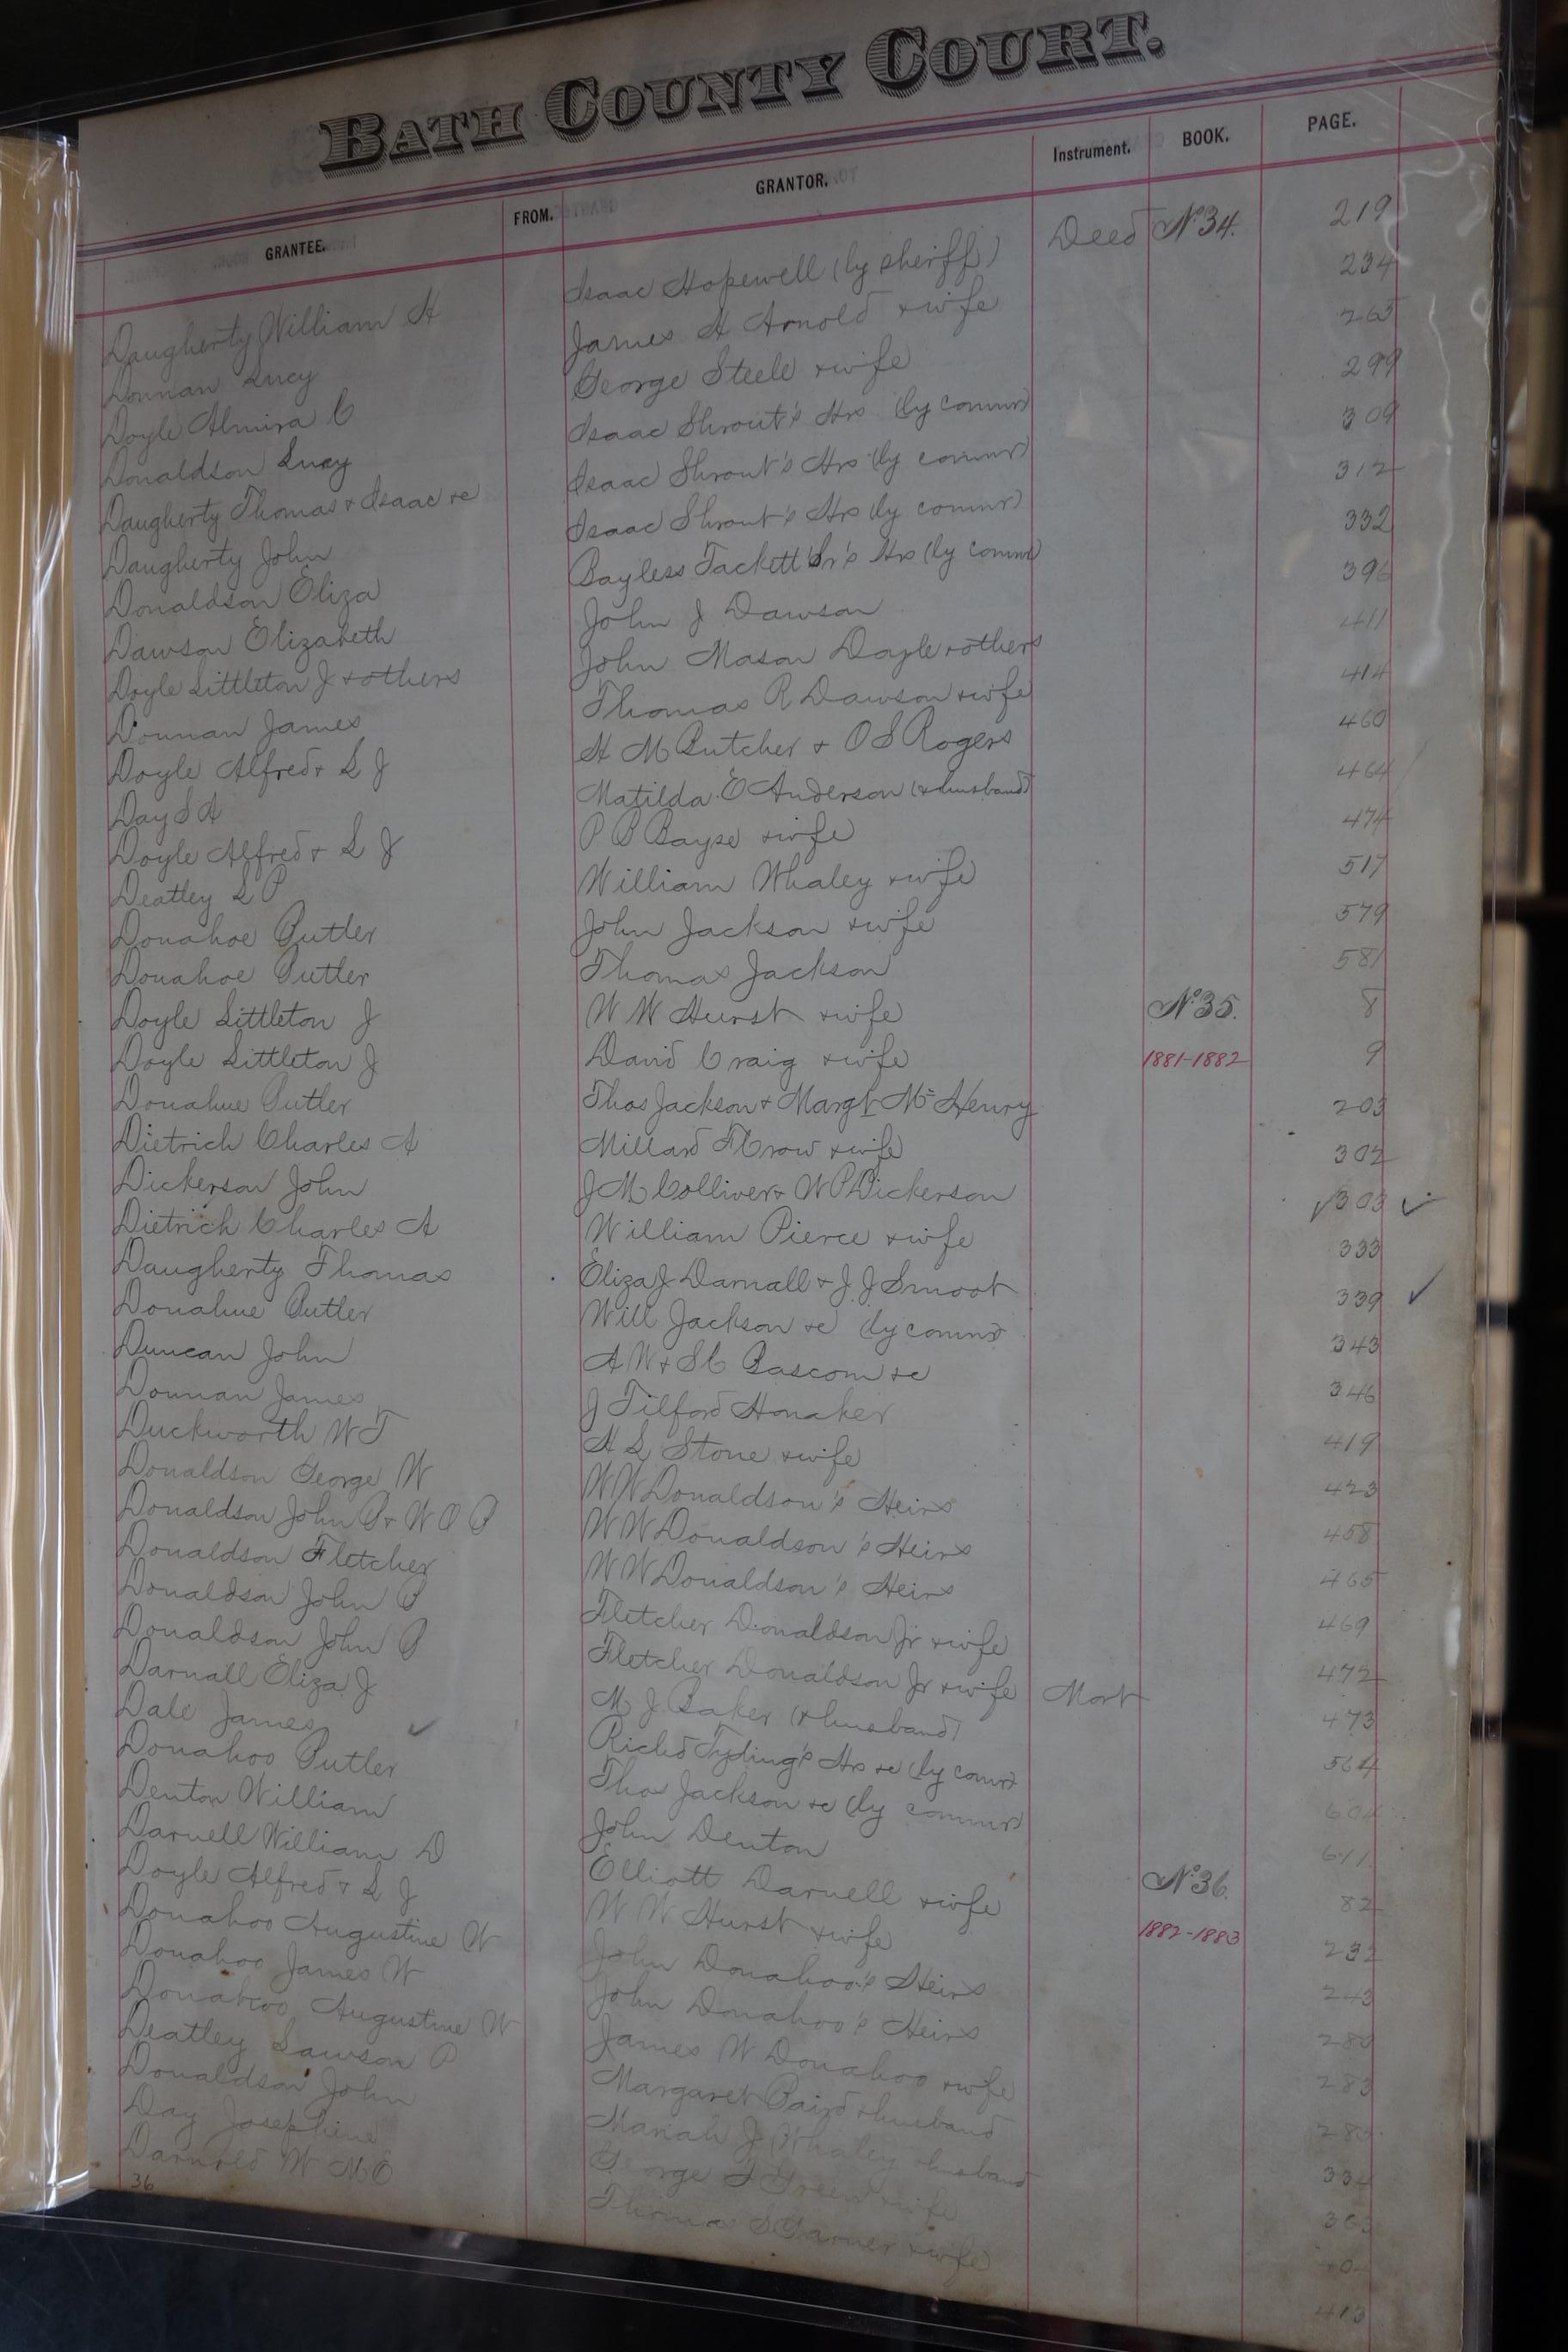 BATH COUNTY COURT.
GRANTEE. FROM. GRANTOR. Instrument. BOOK. PAGE.
Daugherty William H Isaac Hopewell (by sheriff) Deed No 34. 219
Donnan Lucy James H Arnold & wife 234
Doyle Almira C George Steele & wife 265
Donaldson Lucy Isaac Shrout's Hrs (by commr) 299
Daugherty Thomas & Isaac &c Isaac Shrout's Hrs (by commr) 309
Daugherty John Isaac Shrout's Hrs (by commr) 312
Donaldson Eliza Bayless Tackett Sr's Hrs (by commr) 332
Dawson Elizabeth John J Dawson 396
Doyle Littleton J & others John Mason Doyle & others 411
Donnan James Thomas R Dawson & wife 414
Doyle Alfred & L J H M Butcher & O S Rogers 460
Day S A Matilda E Anderson (& husband) 464
Doyle Alfred & L J P B Bayse & wife 474
Deatley L P William Whaley & wife 517
Donahoe Butler John Jackson & wife 579
Donahoe Butler Thomas Jackson 581
Doyle Littleton J W W Hurst & wife No 35. 8
Doyle Littleton J David Craig & wife 1881-1882 9
Donahue Butler Thos Jackson & Margt Mc Henry 203
Dietrich Charles A Millard F Crow & wife 302
Dickerson John J M Colliver & W P Dickerson 303
Dietrich Charles A William Pierce & wife 333
Daugherty Thomas Eliza J Darnall & J J Smoot 339
Donahue Butler Will Jackson &c (by commr) 343
Duncan John A W & S C Bascom &c 346
Donnan James J Tilford Honaker 419
Duckworth W T H L Stone & wife 423
Donaldson George W W W Donaldson's Heirs 458
Donaldson John B & W O B W W Donaldson's Heirs 465
Donaldson Fletcher W W Donaldson's Heirs 469
Donaldson John B Fletcher Donaldson Jr & wife 472
Donaldson John B Fletcher Donaldson Jr & wife Mort 473
Darnall Eliza J M J Baker (& husband) 564
Dale James Richd Tyding's Hrs &c (by commr) 604
Donahoo Butler Thos Jackson &c (by commr) 611
Denton William John Denton No 36. 82
Darnell William D Elliott Darnell & wife 1882-1883 232
Doyle Alfred & L J W W Hurst & wife 243
Donahoo Augustine W John Donahoo's Heirs 280
Donahoo James W John Donahoo's Heirs 283
Donahoo Augustine W James W Donahoo & wife 285
Deatley Lawson P Margaret Baird & husband 334
Donaldson John Mariah J Whaley & husband 363
Day Josephine George F Green & wife
Darnold W McC Thomas S Garner & wife 413
36